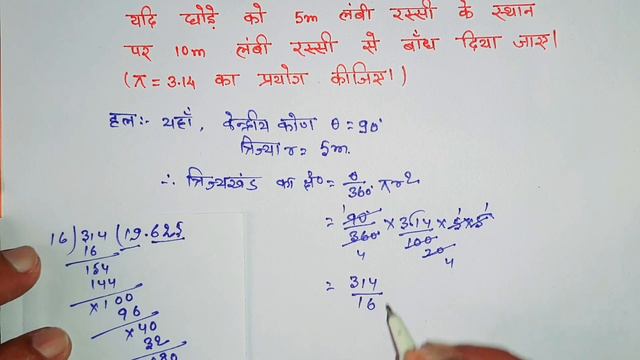 यदि घोड़े को 5m लंबी रस्सी के स्थान
पर 10m लंबी रस्सी से बाँध दिया जाए।
(π = 3.14 का प्रयोग कीजिए।)
हल:- यहाँ, केन्द्रीय कोण θ = 90°
त्रिज्या r = 5m.
∴ त्रिज्यखंड का क्षे० = θ/360° πr²
= 90°/360° × 314/100 × 5 × 5
1 4 20 4 1 1
= 314/16
16) 314 (19.625
16
154
144
×100
96
×40
32